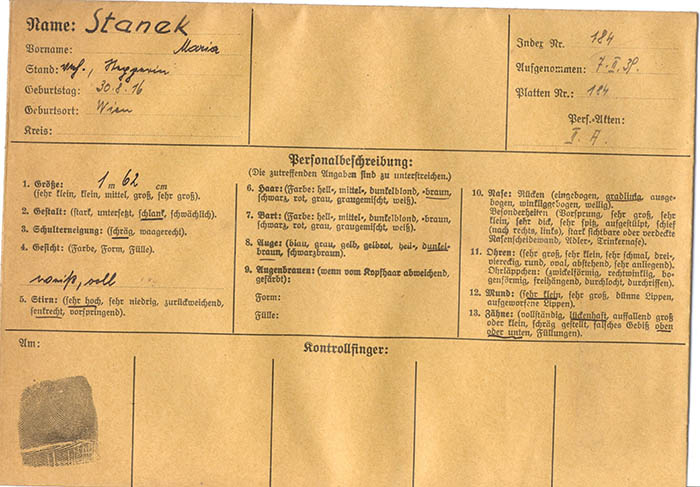 Name: Stanek
Vorname: Maria
Stand: verh.,
Geburtstag: 30.8.16
Geburtsort: Wien
Kreis:
Index Nr. 184
Aufgenommen: 7.II.39.
Platten Nr.: 184
Pers.-Akten:
II. A.
Personalbeschreibung:
(Die zutreffenden Angaben sind zu unterstreichen.)
1. Größe: 1 m 62 cm
(sehr klein, klein, mittel, groß, sehr groß).
2. Gestalt: (stark, untersetzt, schlank, schwächlich).
3. Schulterneigung: (schräg, waagerecht).
4. Gesicht: (Farbe, Form, Fülle).
weiß, voll
5. Stirn: (sehr hoch, sehr niedrig, zurückweichend,
senkrecht, vorspringend).
6. Haar: (Farbe: hell-, mittel-, dunkelblond, -braun,
schwarz, rot, grau, graugemischt, weiß).
7. Bart: (Farbe: hell-, mittel-, dunkelblond, -braun,
schwarz, rot, grau, graugemischt, weiß).
8. Auge: (blau, grau, gelb, gelbrot, hell-, dunkel-
braun, schwarzbraun).
9. Augenbrauen: (wenn vom Kopfhaar abweichend,
gefärbt):
Form:
Fülle:
10. Nase: Rücken (eingebogen, gradlinig, ausge-
bogen, winkliggebogen, wellig).
Besonderheiten (Vorsprung, sehr groß, sehr
klein, sehr dick, sehr spitz, aufgestülpt, schief
(nach rechts, links), stark sichtbare oder verdeckte
Nasenscheidewand, Adler-, Trinkernase).
11. Ohren: (sehr groß, sehr klein, sehr schmal, drei-,
viereckig, rund, oval, abstehend, sehr anliegend).
Ohrläppchen: (zwickelförmig, rechtwinklig, bo-
genförmig, freihängend, durchlocht, durchriffen).
12. Mund: (sehr klein, sehr groß, dünne Lippen,
aufgeworfene Lippen).
13. Zähne: (vollständig, lückenhaft, auffallend groß
oder klein, schräg gestellt, falsches Gebiß oben
oder unten, Füllungen).
Am:
Kontrollfinger: